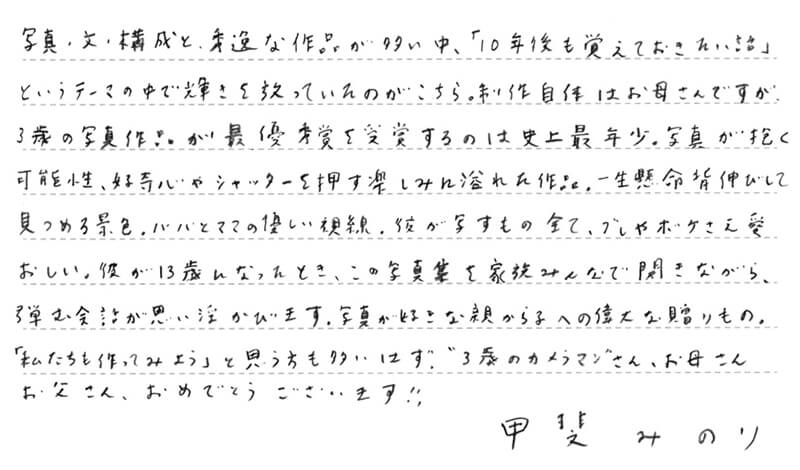 写真・文・構成と、秀逸な作品が多い中、「10年後も覚えておきたい話」
というテーマの中で輝きを放っていたのがこちら。制作自体はお母さんですが、
3歳の写真作品が最優秀賞を受賞するのは史上最年少。写真が抱く
可能性、好奇心やシャッターを押す楽しみに溢れた作品。一生懸命背伸びして
見つめる景色。パパとママの優しい視線。彼が写すもの全て、ブレやボケさえ愛
おしい。彼が13歳になったとき、この写真集を家族みんなで開きながら、
弾む会話が思い浮かびます。写真が好きな親から子への偉大な贈りもの。
「私たちも作ってみよう」と思う方も多いはず。“3歳のカメラマン”さん、お母さん
お父さん、おめでとうございます!!
甲斐みのり